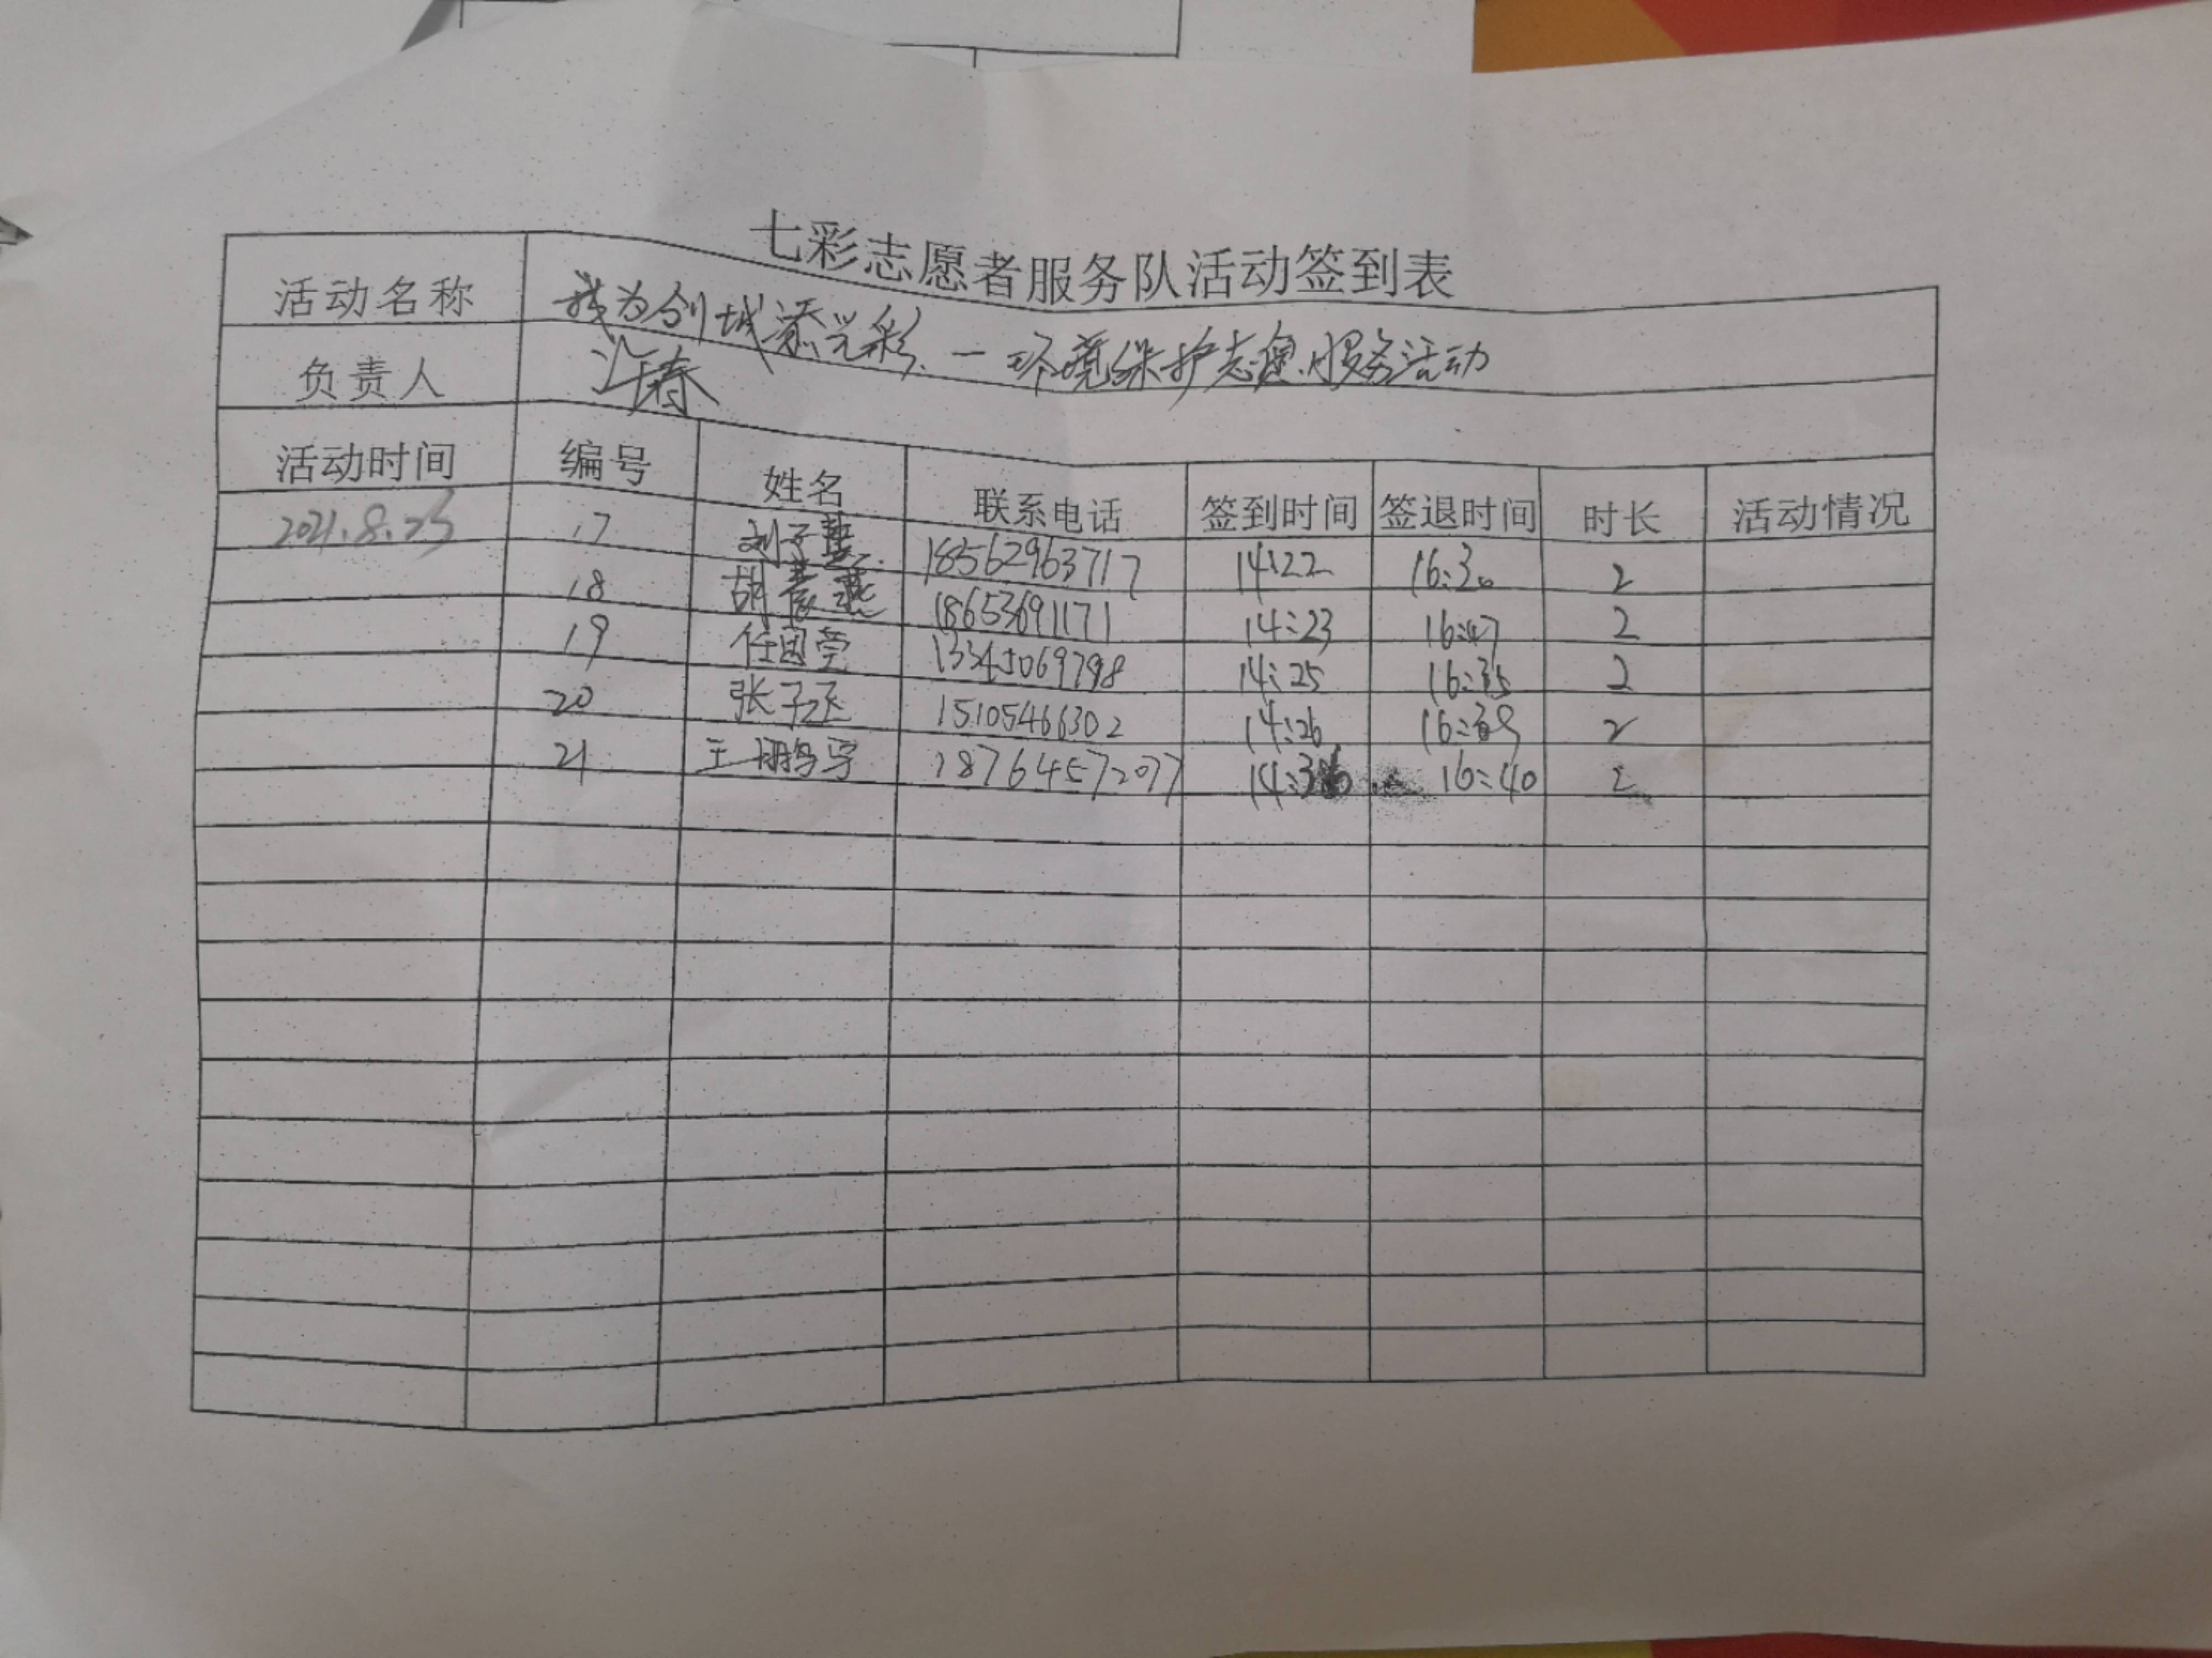 七彩志愿者服务队活动签到表
活动名称 我为创城添光彩.一环境保护志愿服务活动
负责人
活动时间 编号 姓名 联系电话 签到时间 签退时间 时长 活动情况
2021.8.23 17 刘子慧 18562963717 14:22 16:30 2
18 胡 18653691171 14:23 16:47 2
19 任国莹 13345069798 14:25 16:35 2
20 张子丞 15105466302 14:26 16:39 2
21 王翊鸣宇 18764572077 16:40 2